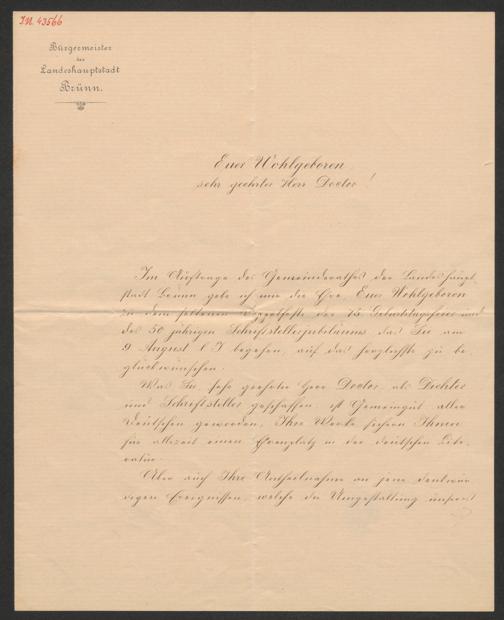 I.N. 43566
Bürgermeister
der
Landeshauptstadt
Brünn.
Euer Wohlgeboren
sehr geehrter Herr Doctor!
Im Auftrage des Gemeinderathes der Landeshaupt-
stadt Brünn gebe ich mir die Ehre, Euer Wohlgeboren
zu dem seltenen Doppelfeste der 75 Geburtstagsfeier und
des 50 jährigen Schriftstellerjubiläums das Sie am
9 August l J begehen, auf das herzlichste zu be-
glückwünschen.
Was Sie, sehr geehrter Herr Doctor, als Dichter
und Schriftsteller geschaffen, ist Gemeingut aller
Deutschen geworden, Ihre Werke sichern Ihnen
für allezeit einen Ehrenplatz in der deutschen Lite-
ratur.
Aber auch Ihre Antheilnahme an jenen denkwür-
digen Ereignissen, welche die Umgestaltung unseres